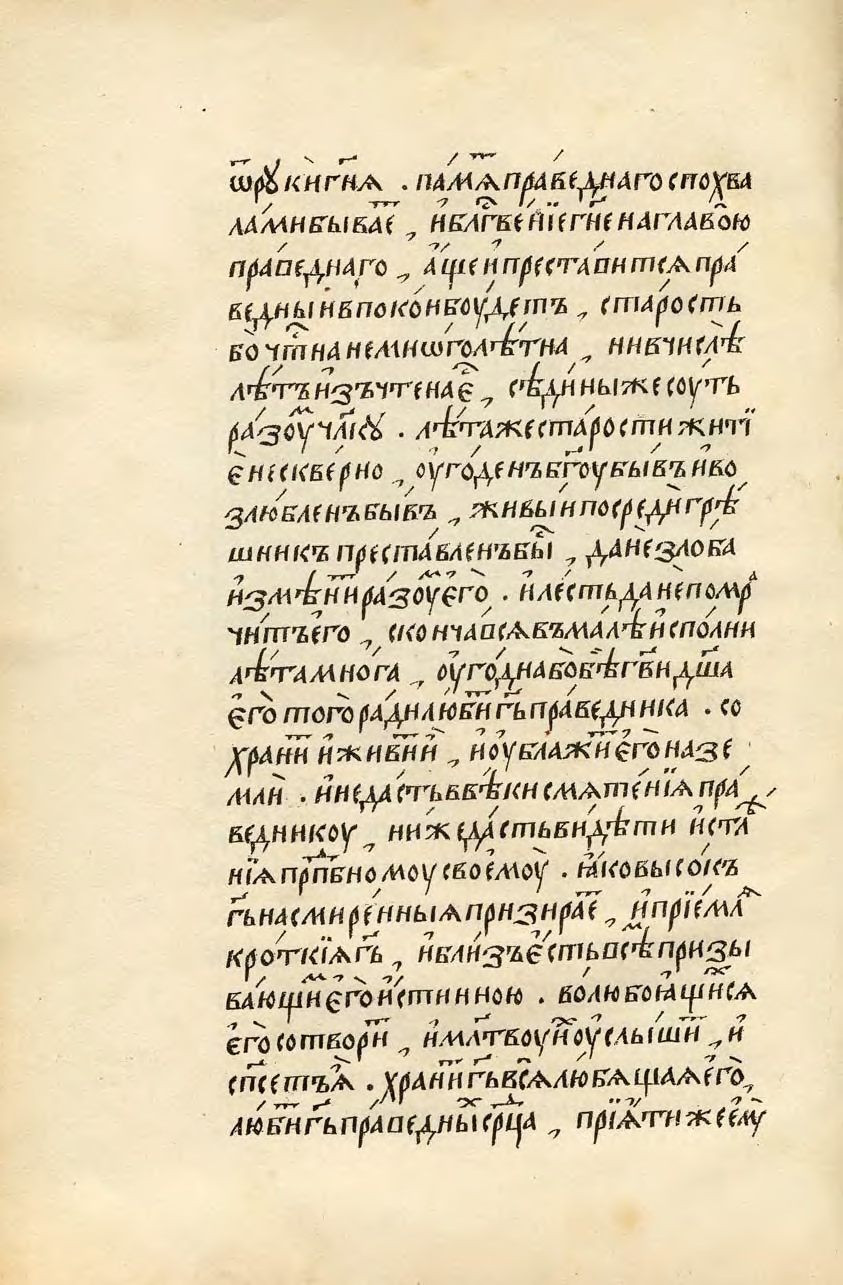 ѿрꙋкѝгнѧ . па́мѧⷮпра́веднагоспохва
ла́мибываⷮе , и҆блгⷭве́нїегн҃енаглаво́ю
пра́веднаго , а҆́щеипреста́витсѧпра́
ведныйвпоко́ибоу́детъ , ста́рость
бо̀чтⷭ҇нанемнѡголѣ́тна , нивчислѣ̀
лѣ́тъи҆зъчтенаеⷭ҇ , сѣди́ныжесоу́ть
ра́зоуⷨчл҃кꙋ . лѣ́тажеста́ростижитї
ѐнескве́рно , оу҆го́денъбг҃оубы́въи҆во
злю́бленъбы́въ , живы́ипосредѝгрѣ́
шникъпреста́вленъбыⷭ҇ , дане҆зло́ба
и҆змѣниⷮра́зоуⷨє҆го̀ . и҆ле́стьдане҆помрⷶ
читъє҆го , сконча́всѧвъма́лѣи҆спо́лни
лѣ́тамно́га , оу҆го́днабо̀бѣ̀гв҃идш҃а
є҆го̀того̀ра́дилю́биⷮгь҃пра́ведника . со
храниⷮ и҆живиⷮи҆̀ , и҆оу҆блажиⷮє҆го̀назе
млѝ . и҆неда́стьввѣ́кисмѧте́нїѧпра́
ведникоу , нижеда́стьви́дѣти и҆стлѣ
нїѧпрпⷣбномоусвоемоу̀ . ꙗ҆ковысо́къ
гь҃насмире́нныѧпризираⷮе , и҆прїе́млѧ
кро́ткїѧгь҃ , и҆бли́зъє҆́стьвсѣⷨпризы
ва́ющиⷨє҆го̀и҆́стинною . во́любоꙗ҆щиⷯсѧ
є҆го̀сотвориⷮ , и҆мл҃твоуи҆ⷯоу҆слышиⷮ , и҆
спсе҃тъѧ҆̀ . храниⷮгь҃всѧ̀лю́бѧщаѧє҆го̀,
лю́биⷮгь҃пра́ведныⷯсрⷣца , прїѧ́тижеемоу̀